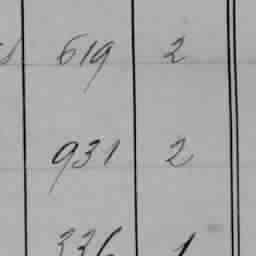 619 2
931 2
336 1